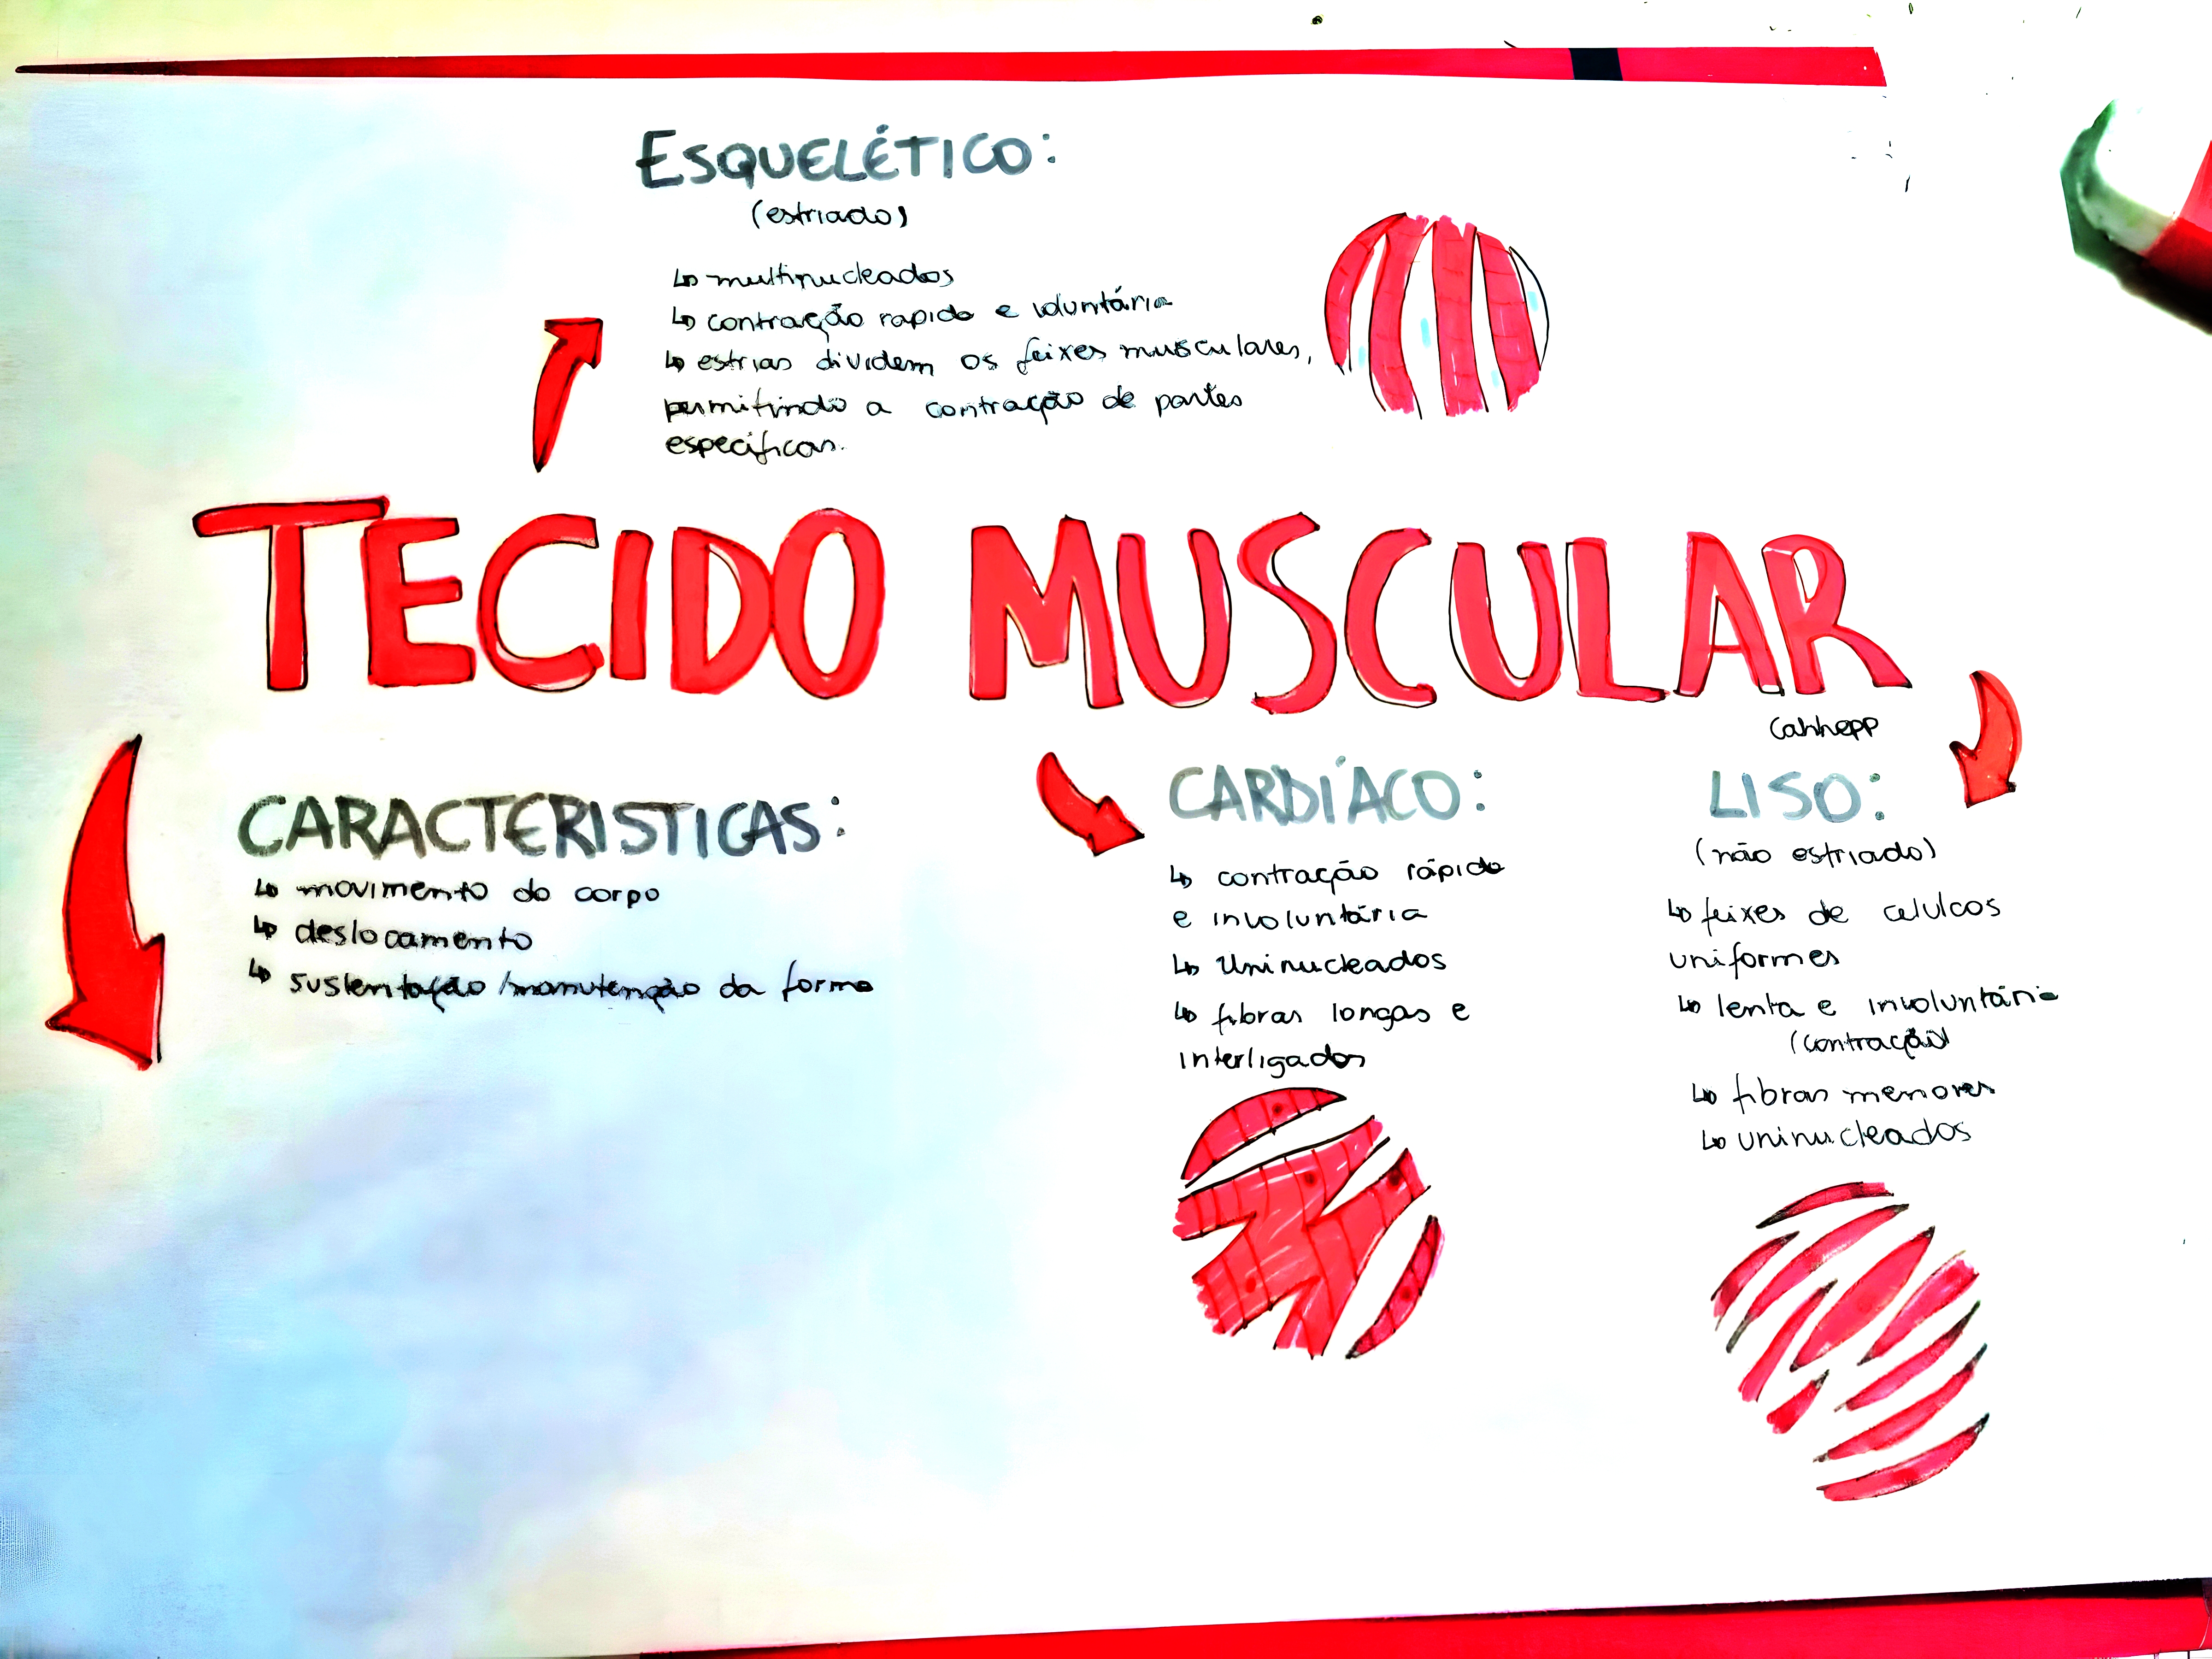 ESQUELÉTICO:
(estriado)
↳ multinucleados
↳ contração rapida e voluntária
↳ estrias dividem os feixes musculares,
permitindo a contração de partes
específicas.
TECIDO MUSCULAR
Cahhepp
CARACTERISTICAS:
↳ movimento do corpo
↳ deslocamento
↳ sustentação/manutenção da forma
CARDÍACO:
↳ contração rápida
e involuntária
↳ Uninucleados
↳ fibras longas e
interligadas
LISO:
(não estriado)
↳ feixes de celulcas
uniformes
↳ lenta e involuntária
(contração)
↳ fibras menores
↳ uninucleados